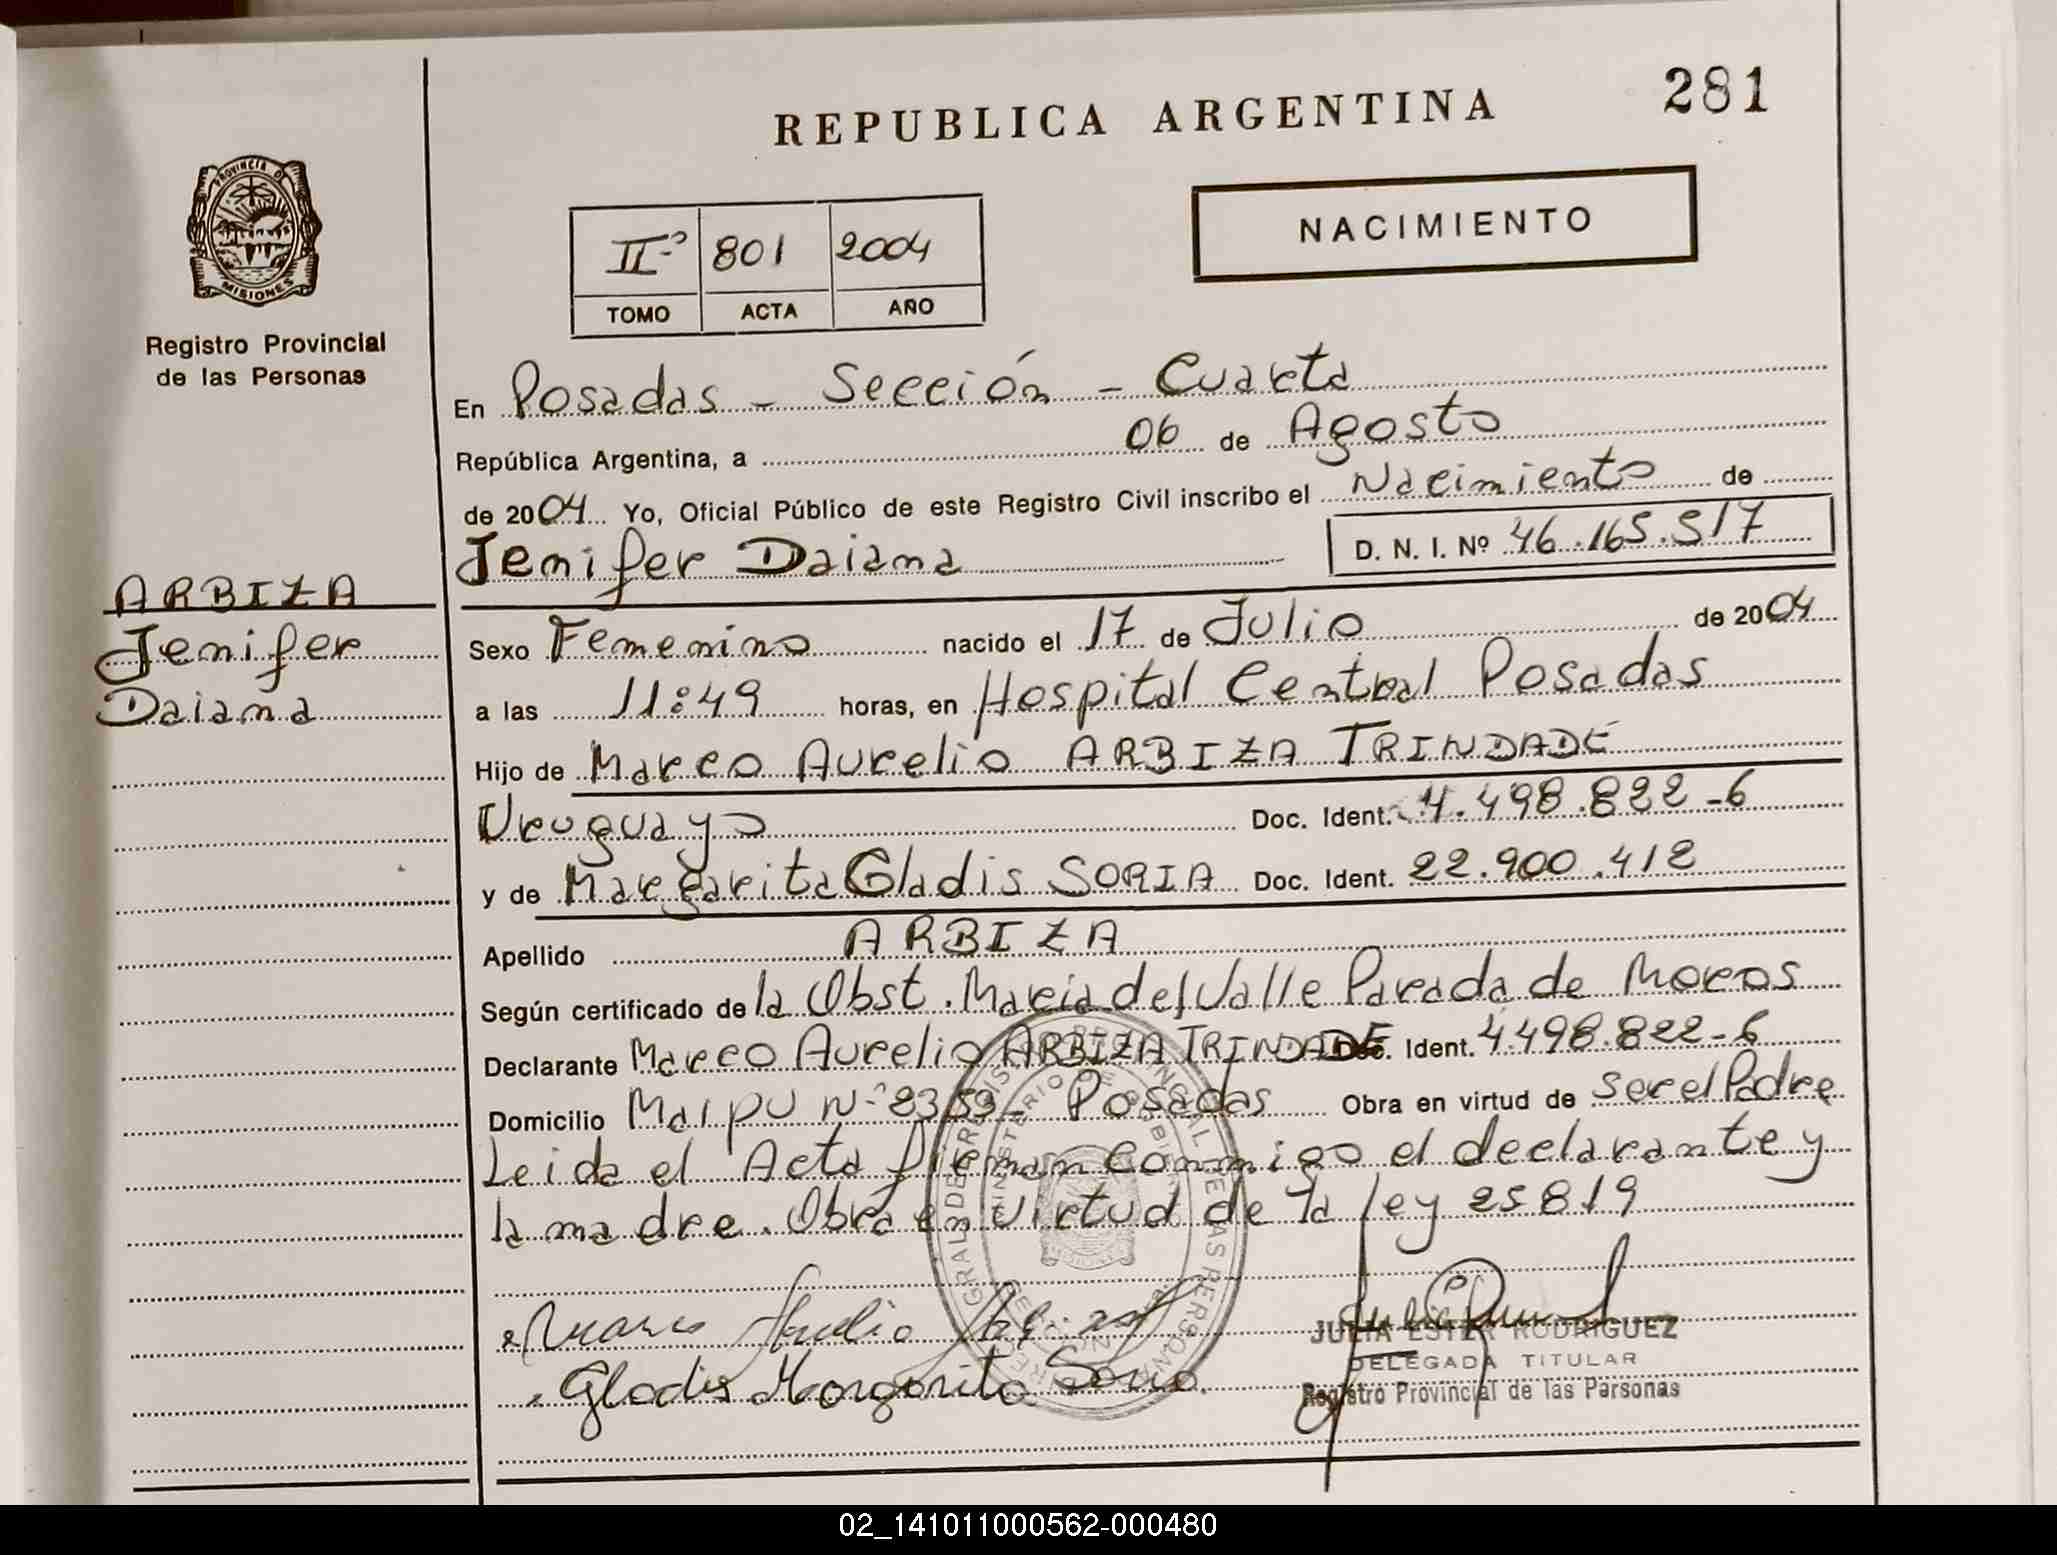 REPUBLICA ARGENTINA
281
PROVINCIA D
MISIONES
Registro Provincial
de las Personas
NACIMIENTO
IIº 801 2004
TOMO ACTA AÑO
En Posadas - Sección - Cuarta
República Argentina, a 06 de Agosto
de 2004 Yo, Oficial Público de este Registro Civil inscribo el Nacimiento de
Jenifer Daiana D. N. I. Nº 46.165.517
ARBIZA
Jenifer
Daiana
Sexo Femenino nacido el 17 de Julio de 2004
a las 11:49 horas, en Hospital Central Posadas
Hijo de Marco Aurelio ARBIZA TRINDADE
Uruguayo Doc. Ident. 4.498.822-6
y de Margarita Gladis SORIA Doc. Ident. 22.900.412
Apellido ARBIZA
Según certificado de la Obst. Maria del Valle Parada de Moros
Declarante Marco Aurelio ARBIZA TRINDADE Doc. Ident. 4.498.822-6
Domicilio Maipu Nº 2359 - Posadas Obra en virtud de ser el Padre
Leida el Acta firman conmigo el declarante y
la madre. Obra en virtud de la ley 25819
Marco Aurelio Arbiza
Gladis Margarita Soria
JULIA ESTER RODRIGUEZ
DELEGADA TITULAR
Registro Provincial de las Personas
02_141011000562-000480